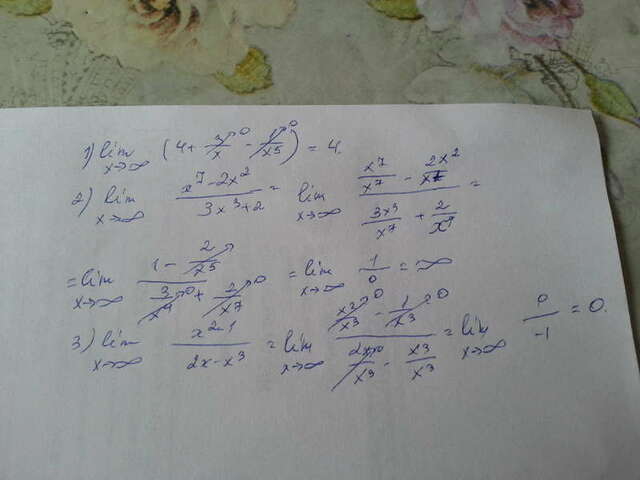 1) lim x→∞ (4 + 3/x→0 - 1/x^5→0) = 4.
2) lim x→∞ (x^7 - 2x^2)/(3x^3 + 2) = lim x→∞ (x^7/x^7 - 2x^2/x^7)/(3x^3/x^7 + 2/x^7) =
= lim x→∞ (1 - 2/x^5)/(3/x^4→0 + 2/x^7→0) = lim x→∞ 1/0 = ∞
3) lim x→∞ (x^2 - 1)/(2x - x^3) = lim x→∞ (x^2/x^3→0 - 1/x^3→0)/(2x/x^3→0 - x^3/x^3) = lim x→∞ 0/-1 = 0.